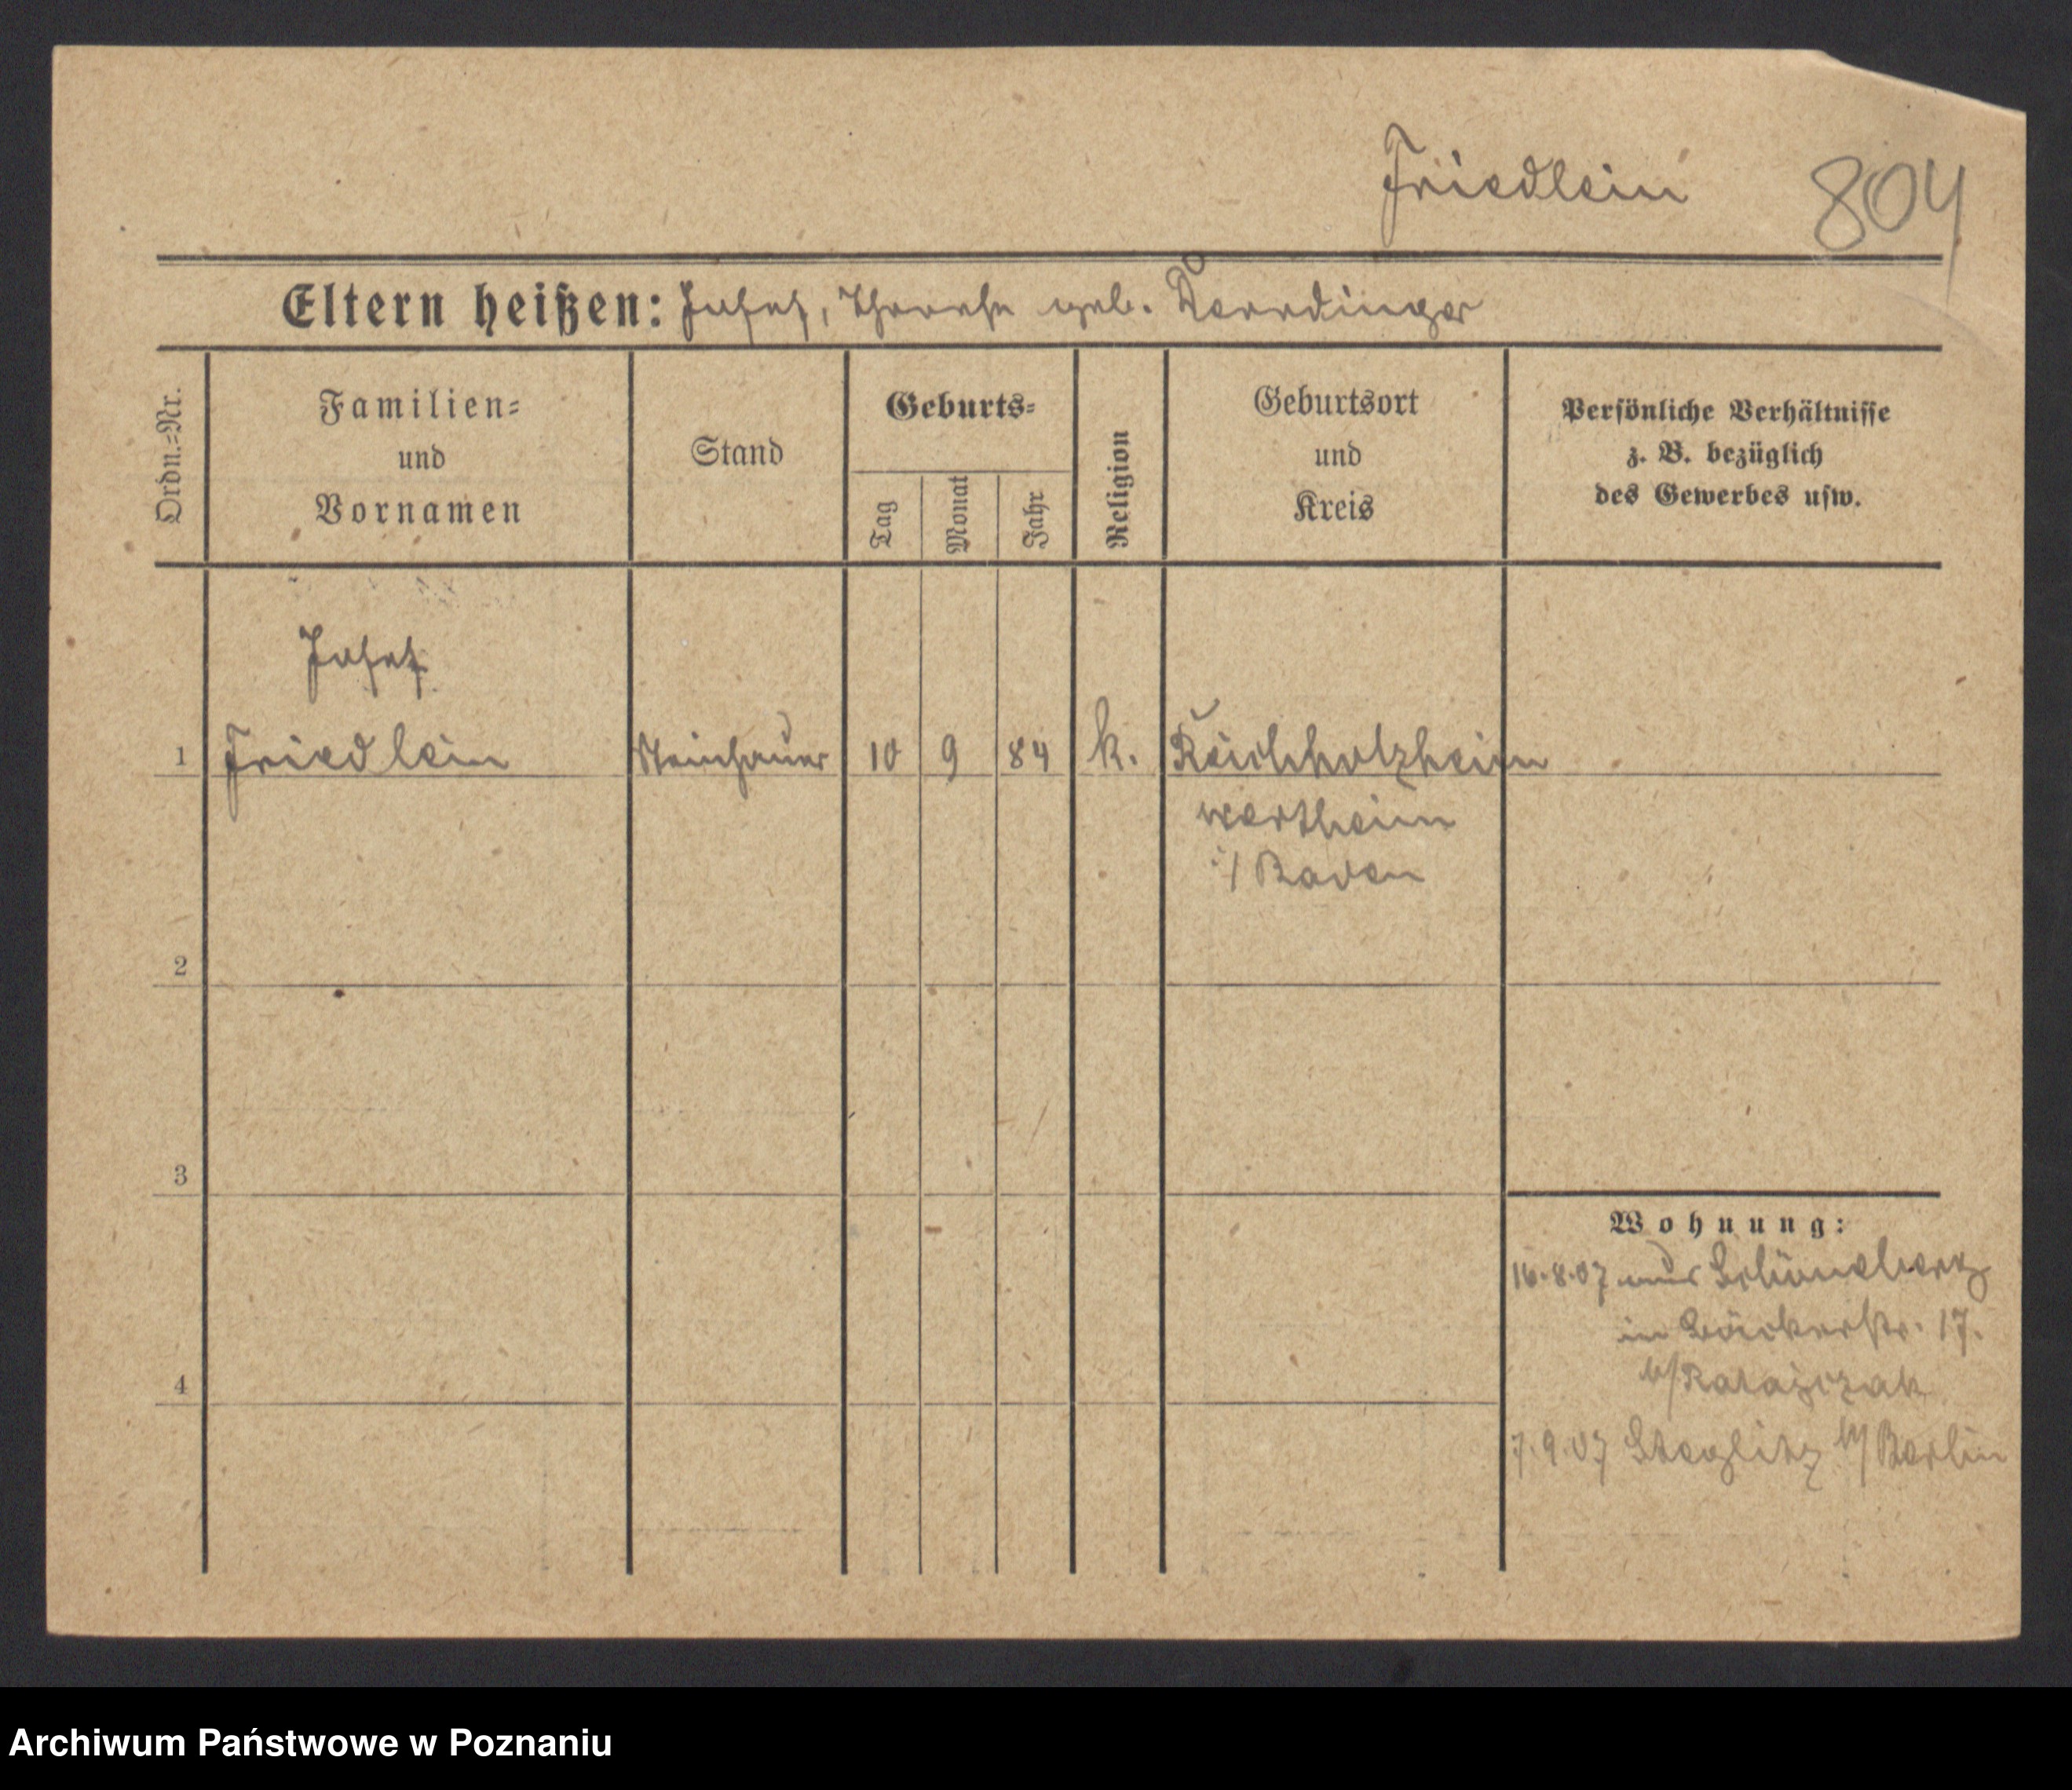 Friedlein 804
Eltern heißen: Josef, Therese geb.
Ordn.=Nr.
Familien=
und
Vornamen
Stand
Geburts=
Tag
Monat
Jahr
Religion
Geburtsort
und
Kreis
Persönliche Verhältnisse
z. B. bezüglich
des Gewerbes usw.
Josef
1 Friedlein Steinhauer 10 9 84 k. Reichholzheim
Wertheim
i/ Baden
2
3
4
Wohnung:
16.8.07 aus Schöneberg
in Bäckerstr. 17.
b/ Ratajczak
7.9.07 Steglitz b/ Berlin
Archiwum Państwowe w Poznaniu